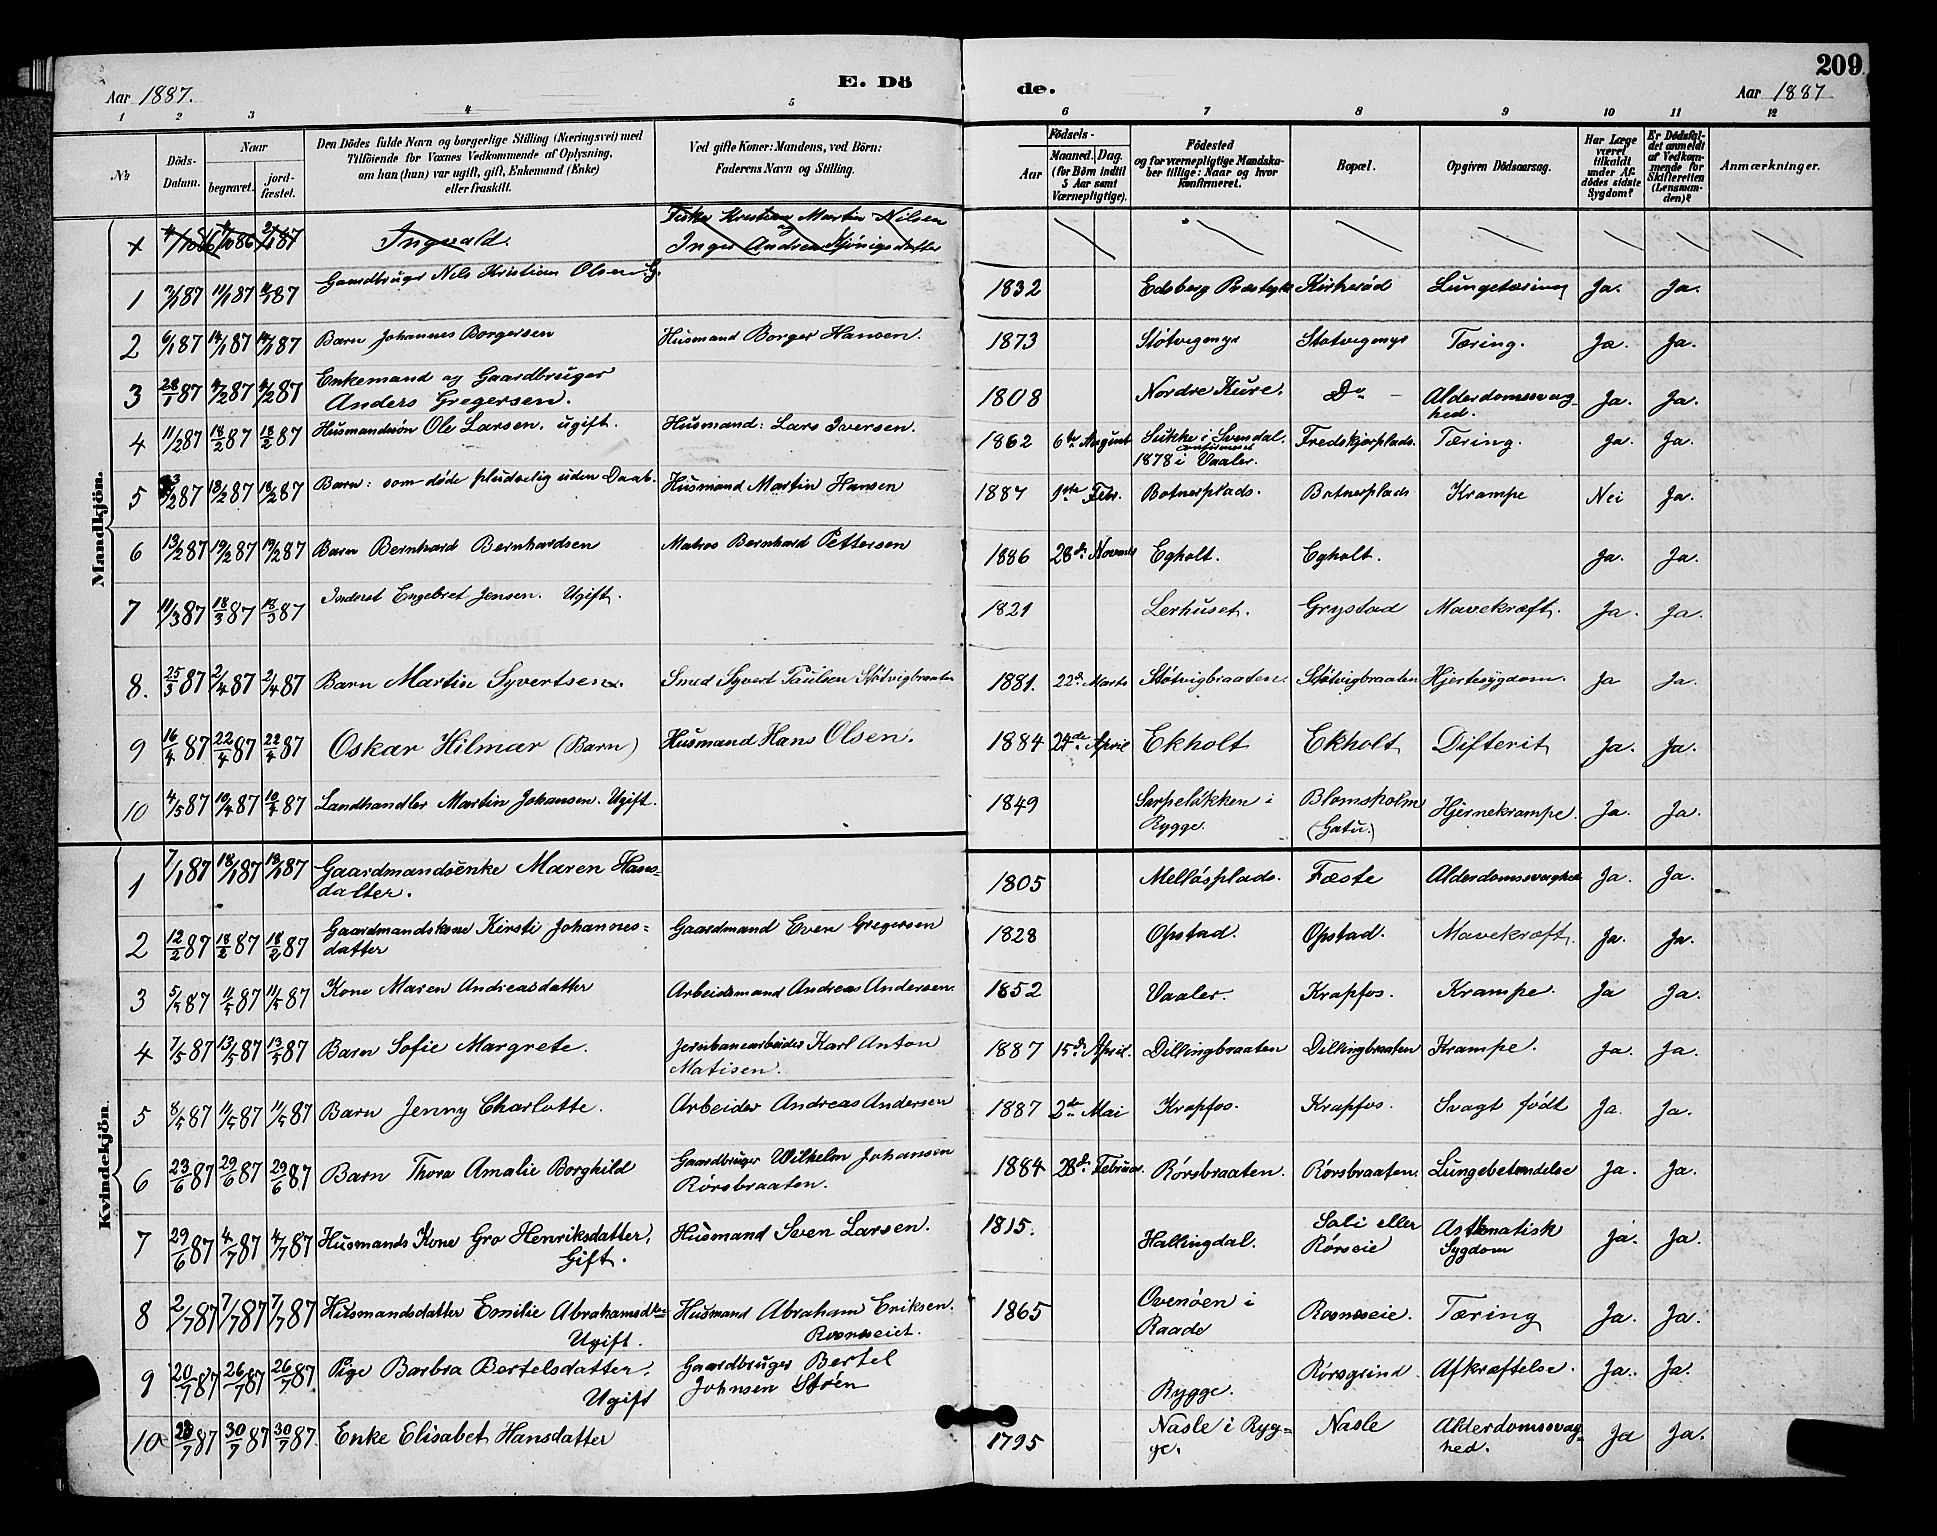 Aar 1887.
E. Dö
de.
209
Aar 1887
1 2 3 4 5 6 7 8 9 10 11 12
No
Döds-Datum.
Naar
begravet.
jord-fæstet.
Den Dödes fulde Navn og borgerlige Stilling (Næringsvei) med
Tilföiende for Voxnes Vedkommende af Oplysning,
om han (hun) var ugift, gift, Enkemand (Enke)
eller fraskilt.
Ved gifte Koner: Mandens, ved Börn:
Faderens Navn og Stilling.
Födsels-
Aar
Maaned. Dag.
(for Börn indtil
5 Aar samt
Værnepligtige).
Födested
og for værnepligtige Mandska-
ber tillige: Naar og hvor
konfirmeret.
Bopæl.
Opgiven Dödsaarsag.
Har Læge
været
tilkaldt
under Af-
dödes sidste
Sygdom?
Er Dödsfal-
det anmeldt
af Vedkom-
mende for
Skifteretten
(Lensman-
den)?
Anmærkninger.
Mandkjön.
Ingvald. Fisker Kristian Martin Nilsen
og
Inger Andrea Kjönigsdatter
1 Gaardbruger Nils Kristian Olsen G. 1832 Edsberg Præstegk Kirkeröd Lungetæring Ja. Ja.
2 6/1 87 14/1 87 14/1 87 Barn Johannes Borgersen Husmand Borger Hansen. 1873 Stötvigenys Stotvigenys Tæring. Ja. Ja.
3 28/1 87 4/2 87 4/2 87 Enkemand og Gaardbruger
Anders Gregersen. 1808 Nordre Kure. Do Alderdomssvag-
hed. Ja. Ja.
4 11/2 87 18/2 87 18/2 87 Husmandssön Ole Larsen. ugift. Husmand: Lars Iversen. 1862 6te August Sukke i Svendal.
1878 i Vaaler. Fredskjorplads. Tæring. Ja. Ja.
5 18/2 87 18/2 87 Barn: som döde pludselig uden Daab. Husmand Martin Hansen 1887 1ste Febr. Botnerplads. Botnerplads Krampe Nei Ja.
6 13/2 87 19/2 87 19/2 87 Barn Bernhard Bernhardsen Matros Bernhard Pettersen 1886 28de Novemb Egholt. Egholt. Ja. Ja.
7 11/3 87 18/3 87 18/3 87 Inderst Engebret Jensen. Ugift. 1821 Lerhuset. Grystad Mavekræft. Ja. Ja.
8. 25/3 87 2/4 87 2/4 87 Barn Martin Syvertsen. Smed Syvert Paulsen Stötvigbraaten 1881. 22de Marts Stötvigbraaten. Stötvigbraaten Hjertesygdom. Ja Ja.
9 16/4 87 22/4 87 22/4 87 Oskar Hilmar (Barn) Husmand Hans Olsen. 1884 24de April Ekholt Ekholt Difterit Ja. Ja.
10 4/5 87 10/4 87 10/4 87 Landhandler Martin Johansen. Ugift. 1849 Sarpelökken i
Rygge. Blomsholm
(Gatu.) Hjernekrampe. Ja. Ja.
Kvindekjön.
1 7/1 87 18/1 87 18/1 87 Gaardmandsenke Maren Hans-
datter. 1805 Mellösplads. Fæste Alderdomssvaghed Ja. Ja.
2 12/2 87 18/2 87 18/2 87 Gaardmandskone Kirsti Johannes-
datter Gaardmand Even Gregersen 1828 Opstad. Opstad. Mavekræft. Ja. Ja.
3 5/5 87 11/5 87 11/5 87 Kone Maren Andreasdatter Arbeidsmand Andreas Andersen. 1852 Vaaler. Krapfos. Krampe. Ja Ja.
4 7/5 87 13/5 87 13/5 87 Barn Sofie Margrete. Jernbanearbeider Karl Anton
Matisen. 1887 15de April. Dillingbraaten Dillingbraaten Krampe. Ja. Ja.
5 8/5 87 11/5 87 11/5 87 Barn Jenny Charlotte. Arbeider Andreas Andersen 1887 2de Mai Krapfos. Krapfos. Svagt födt Ja. Ja.
6 23/6 87 29/6 87 29/6 87 Barn Thora Amalie Borghild Gaardbruger Wilhelm Johansen
Rörsbraaten. 1884 28de Februar. Rörsbraaten. Rörsbraaten. Lungebetændelse Ja. Ja.
7 29/6 87 4/7 87 4/7 87 Husmands Kone Gro Henriksdatter.
Gift. Husmand Sven Larsen. 1815. Hallingdal. Sali eller
Rörseie Asthmatisk
Sygdom Ja. Ja.
8 2/7 87 7/7 87 7/7 87 Husmandsdatter Emilie Abrahamsdtr
Ugift. Husmand Abraham Eriksen.
Rosnæseiet. 1865 Ovenöen i
Raade Rosnæseie. Tæring Ja. Ja.
9 20/7 87 26/7 87 26/7 87 Pige Barbra Bertelsdatter.
Ugift Gaardbruger Bertel
Johnsen Stöen Rygge. Rörsgrind. Afkræftelse. Ja. Ja.
10 87 30/7 87 30/7 87 Enke Elisabet Hansdatter 1795 Nasle i Ryg-
ge. Nasle Alderdomssvag-
hed. Ja Ja.